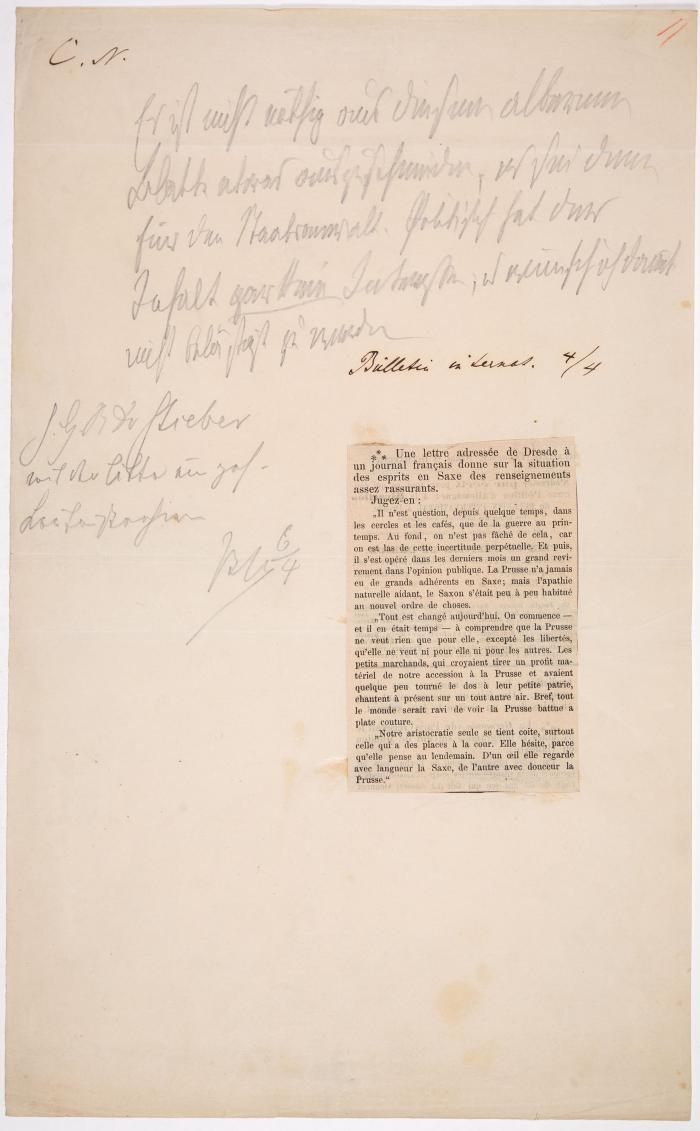 C. N.
11
Es ist nicht nöthig aus diesem albernen
Blatte etwas auszuschneiden, es sei denn
für den Staatsanwalt. Politisch hat der
Inhalt gar kein Interesse, u wünsche ich damit
nicht belästigt zu werden
Bulletin internat. 4/4
H. G. R. Dr Stieber
mit der Bitte um gef.
6/4
⁂ Une lettre adressée de Dresde à
un journal français donne sur la situation
des esprits en Saxe des renseignements
assez rassurants.
Jugez-en:
„Il n'est question, depuis quelque temps, dans
les cercles et les cafés, que de la guerre au prin-
temps. Au fond, on n'est pas fâché de cela, car
on est las de cette incertitude perpétuelle. Et puis,
il s'est opéré dans les derniers mois un grand revi-
rement dans l'opinion publique. La Prusse n'a jamais
eu de grands adhérents en Saxe; mais l'apathie
naturelle aidant, le Saxon s'était peu à peu habitué
au nouvel ordre de choses.
„Tout est changé aujourd'hui. On commence —
et il en était temps — à comprendre que la Prusse
ne veut rien que pour elle, excepté les libertés,
qu'elle ne veut ni pour elle ni pour les autres. Les
petits marchands, qui croyaient tirer un profit ma-
tériel de notre accession à la Prusse et avaient
quelque peu tourné le dos à leur petite patrie,
chantent à présent sur un tout autre air. Bref, tout
le monde serait ravi de voir la Prusse battue a
plate couture.
„Notre aristocratie seule se tient coite, surtout
celle qui a des places à la cour. Elle hésite, parce
qu'elle pense au lendemain. D'un œil elle regarde
avec langueur la Saxe, de l'autre avec douceur la
Prusse."